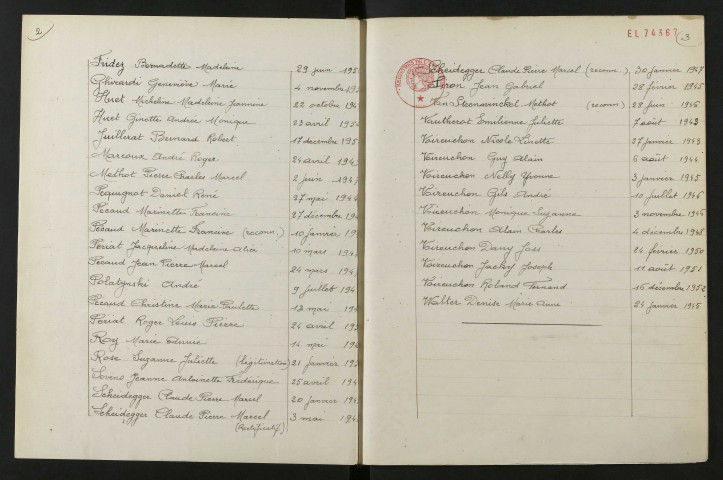 2
Fridez Bernadette Madeleine 29 juin 195
Ghirardi Geneviève Marie 4 novembre 19
Huot Micheline Madeleine Jeannine 22 octobre 194
Huet Ginette Andrée Monique 23 avril 195
Juillerat Bernard Robert 17 décembre 195
Marcoux André Roger 24 avril 194
Mathot Pierre Charles Marcel 2 juin 194
Pequignot Daniel René 27 mai 194
Pécaud Marinette Francine 27 décembre 194
Pécaud Marinette Francine (reconn.) 10 janvier 19
Périat Jacqueline Madeleine 10 mars 194
Pécaud Jean Pierre Marcel 24 mars 194
Polatynski André 9 juillet 194
Pécaud Christine Marie Paulette 12 mai 19
Périat Roger Louis Pierre 26 avril 195
Roy Marie Annie 14 mai 19
Rose Suzanne Juliette (légitimation) 21 janvier 19
Jeanne Antoinette Frédérique 25 avril 194
Scheidegger Claude Pierre Marcel 20 janvier 194
Scheidegger Claude Pierre Marcel 3 mai 194
(Rectificatif)
EL 74367
3
Scheidegger Claude Pierre Marcel (reconn.) 30 janvier 1947
Jean Gabriel 28 février 1945
Van Steenwinckel Mathot (reconn) 28 juin 1946
Vautherot Emilienne Juliette 7 août 1943
Voireuchon Nicole Linette 27 janvier 1943
Voireuchon Guy Alain 6 août 1944
Voireuchon Nelly Yvonne 3 janvier 1945
Voireuchon Gils André 10 juillet 1946
Voireuchon Monique Suzanne 3 novembre 1946
Voireuchon Alain Charles 4 décembre 1948
Voireuchon Dany Joss 24 février 1950
Voireuchon Jacky Joseph 11 août 1951
Voireuchon Roland Fernand 16 décembre 1952
Walter Denise Marie Anne 24 janvier 1945